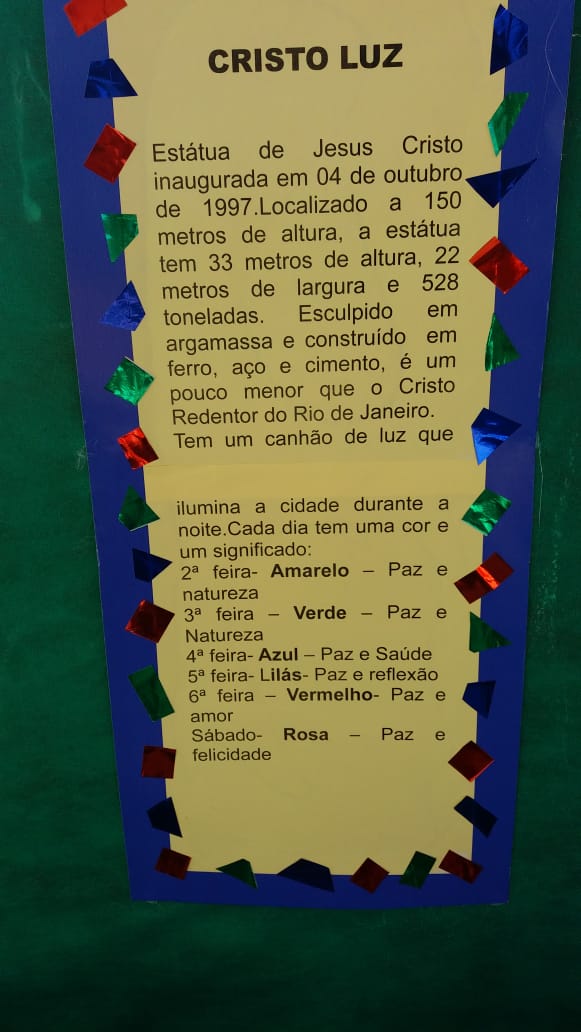 CRISTO LUZ
Estátua de Jesus Cristo
inaugurada em 04 de outubro
de 1997.Localizado a 150
metros de altura, a estátua
tem 33 metros de altura, 22
metros de largura e 528
toneladas. Esculpido em
argamassa e construído em
ferro, aço e cimento, é um
pouco menor que o Cristo
Redentor do Rio de Janeiro.
Tem um canhão de luz que
ilumina a cidade durante a
noite.Cada dia tem uma cor e
um significado:
2ª feira- Amarelo – Paz e
natureza
3ª feira – Verde – Paz e
Natureza
4ª feira- Azul – Paz e Saúde
5ª feira- Lilás- Paz e reflexão
6ª feira – Vermelho- Paz e
amor
Sábado- Rosa – Paz e
felicidade